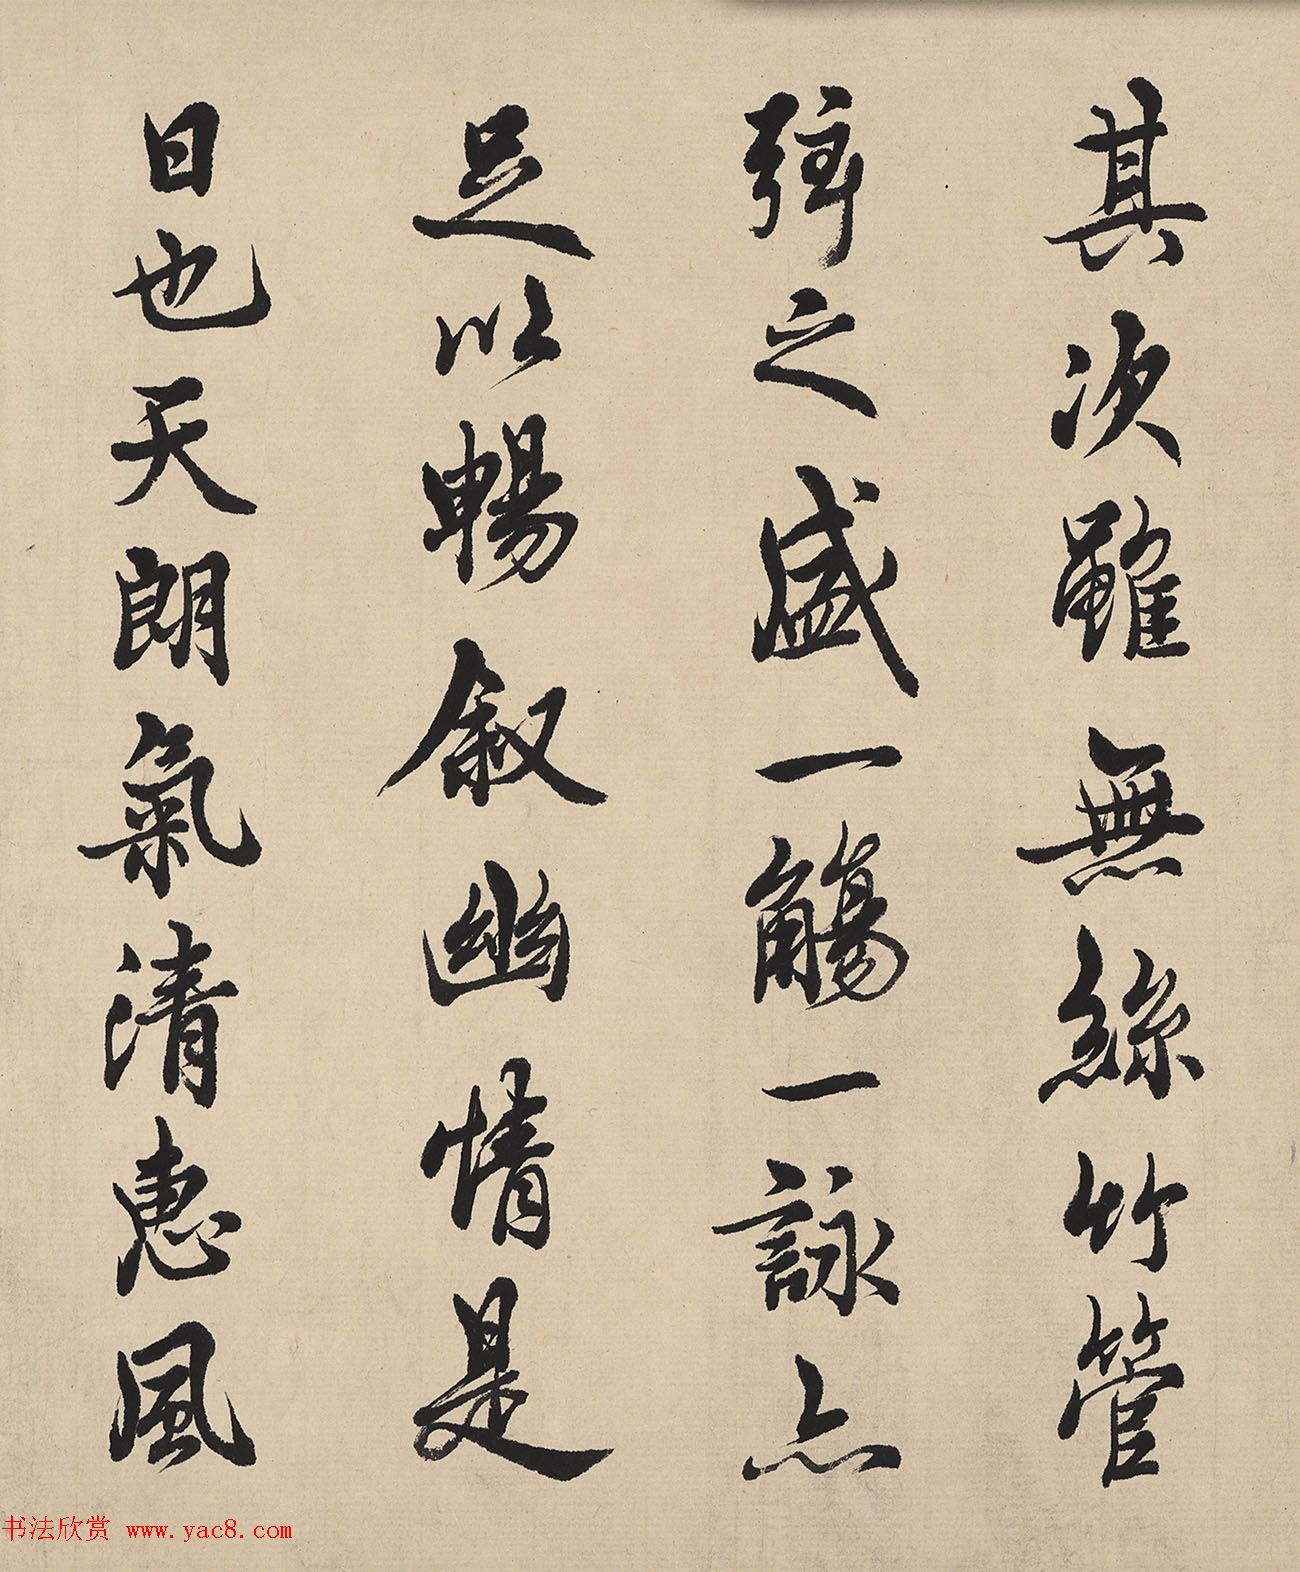 其次雖無絲竹管
弦之盛一觴一詠亦
足以暢敘幽情是
日也天朗氣清惠風
书法欣赏 www.yac8.com